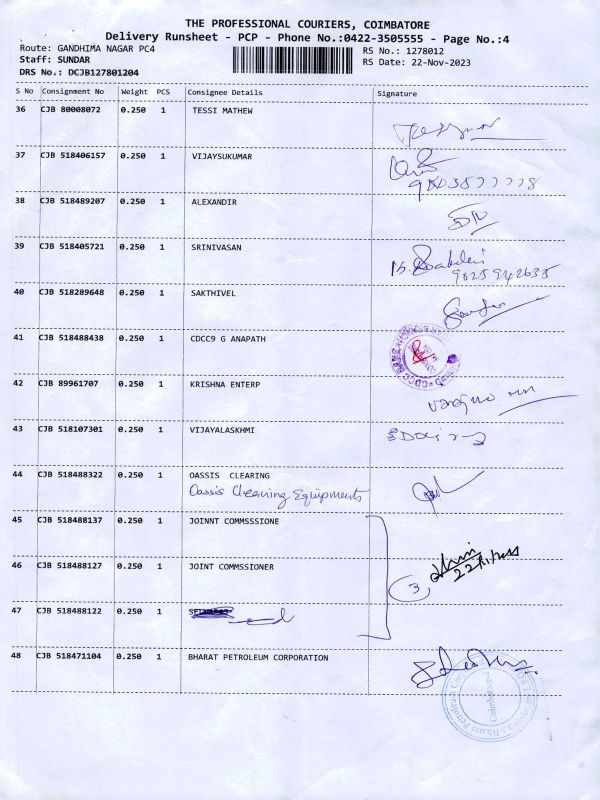 THE PROFESSIONAL COURIERS, COIMBATORE
Delivery Runsheet - PCP - Phone No.:0422-3505555 - Page No.:4
Route: GANDHIMA NAGAR PC4 RS No.: 1278012
Staff: SUNDAR RS Date: 22-Nov-2023
DRS No.: DCJB127801204
S No Consignment No Weight PCS Consignee Details Signature
36 CJB 80008072 0.250 1 TESSI MATHEW
37 CJB 518406157 0.250 1 VIJAYSUKUMAR
38 CJB 518489207 0.250 1 ALEXANDIR
39 CJB 518405721 0.250 1 SRINIVASAN
40 CJB 518289648 0.250 1 SAKTHIVEL
41 CJB 518488438 0.250 1 CDCC9 G ANAPATH
42 CJB 89961707 0.250 1 KRISHNA ENTERP
43 CJB 518107301 0.250 1 VIJAYALASKHMI
44 CJB 518488322 0.250 1 OASSIS CLEARING
Oassis Cleaning Equipments
45 CJB 518488137 0.250 1 JOINNT COMMSSSIONE
46 CJB 518488127 0.250 1 JOINT COMMSSIONER
3
47 CJB 518488122 0.250 1
48 CJB 518471104 0.250 1 BHARAT PETROLEUM CORPORATION